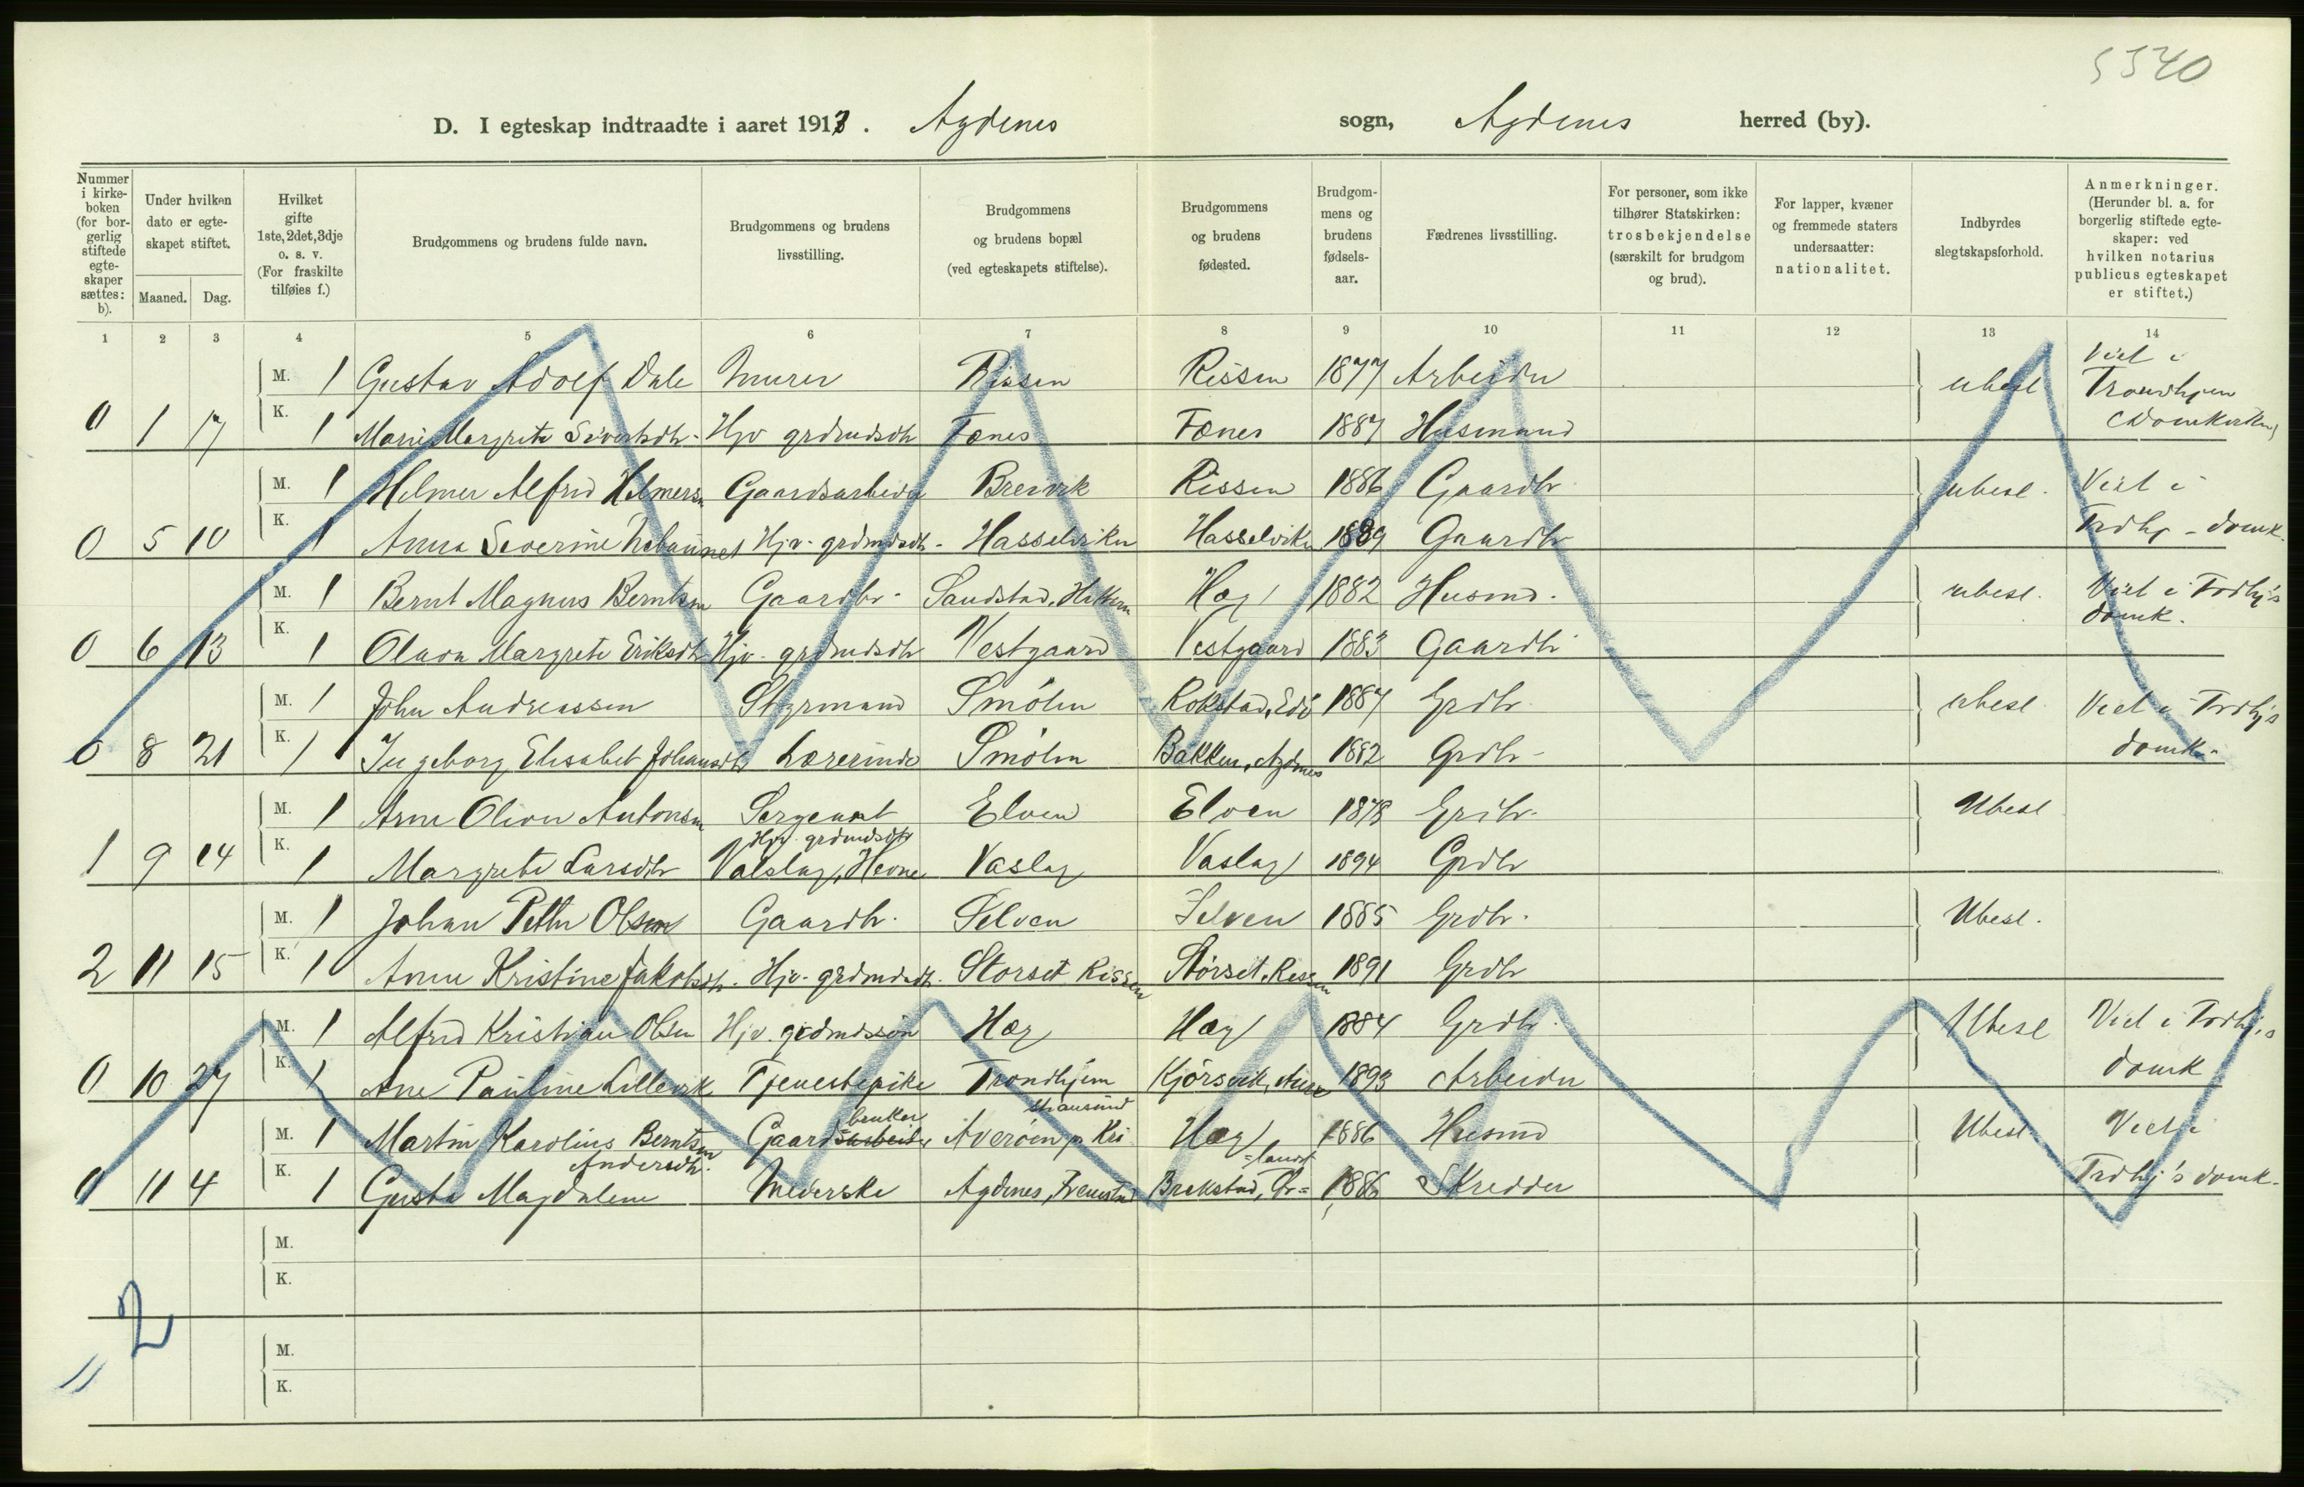 5340
D. I egteskap indtraadte i aaret 1913. Agdenes sogn, Agdenes herred (by).
Nummer i kirkeboken (for borgerlig stiftede egteskaper sættes: b).
Under hvilken dato er egteskapet stiftet.
Maaned. Dag.
Hvilket gifte 1ste, 2det, 3dje o. s. v. (For fraskilte tilføies f.)
Brudgommens og brudens fulde navn.
Brudgommens og brudens livsstilling.
Brudgommens og brudens bopæl (ved egteskapets stiftelse).
Brudgommens og brudens fødested.
Brudgommens og brudens fødselsaar.
Fædrenes livsstilling.
For personer, som ikke tilhører Statskirken: trosbekjendelse (særskilt for brudgom og brud).
For lapper, kvæner og fremmede staters undersaatter: nationalitet.
Indbyrdes slegtskapsforhold.
Anmerkninger. (Herunder bl. a. for borgerlig stiftede egteskaper: ved hvilken notarius publicus egteskapet er stiftet.)
1 2 3 4 5 6 7 8 9 10 11 12 13 14
M. 1 Gustav Adolf Dale Murer Rissen Rissen 1877 Arbeider ubesl Viet i Trondhjem Domkirken
0 1 17 K. 1 Marie Margrete Sivertsdtr. Hjv grdmdsdtr Fænes Fænes 1887 Husmand
M. 1 Helmer Alfred Helmersn Gaardsarbeider Breivik Rissen 1886 Gaardbr ubesl. Viet i
0 5 10 K. 1 Anna Severine Hjv. grdmdsdtr. Hasselviken Hasselviken 1889 Gaardbr Trdhj - domk.
M. 1 Bernt Magnus Berntsen Gaardbr. Sandstad, Hittern Hæg 1882 Husmd. ubesl. Viet i Trdhj's domk.
0 6 13 K. 1 Olava Margrete Eriksdtr Hjv. grdmdsdtr Vestgaard Vestgaard 1883 Gaardbr
M. 1 John Andreassen Styrmand Smølen Rokstad, Edø 1887 Grdbr. ubesl. Viet i Trdhj's
0 8 21 K. 1 Ingeborg Elisabet Johansdtr Lærerinde Smølen Bakken, Agdnes 1882 Grdbr. domk.
M. 1 Arne Oliver Antonsen Sergeant Elven Elven 1878 Grdbr. Ubesl
Hjv. grdmdsdtr
1 9 14 K. 1 Margrete Larsdtr Valslag, Hevne Vaslag Vaslag 1894 Grdbr
M. 1 Johan Petter Olsen Gaardbr. Selven Selven 1885 Grdbr. Ubesl.
2 11 15 K. 1 Anne Kristine Jakobsdtr. Hjv. grdmdsdtr. Storset Rissen Storset, Rissen 1891 Grdbr
M. 1 Alfred Kristian Olsen Hjv. grdmdssøn Hæg Hæg 1884 Grdbr. Ubesl Viet i Trdhj.s
0 10 27 K. 1 Ane Pauline Lillevik Tjenestepike Trondhjem Kjørsvik, Aure 1893 Arbeider domk
bruker stiansund
M. 1 Martin Karolius Berntsen Gaardsarbeider Averøen p. Kri Hæg 1886 Husmd Ubesl. Viet i
Andersdtr. =landet
0 11 4 K. 1 Gusta Magdalene Meierske Agdenes, Brekstad, Ør= 1886 Skredder Trdhj's domk.
M.
K.
2
M.
K.